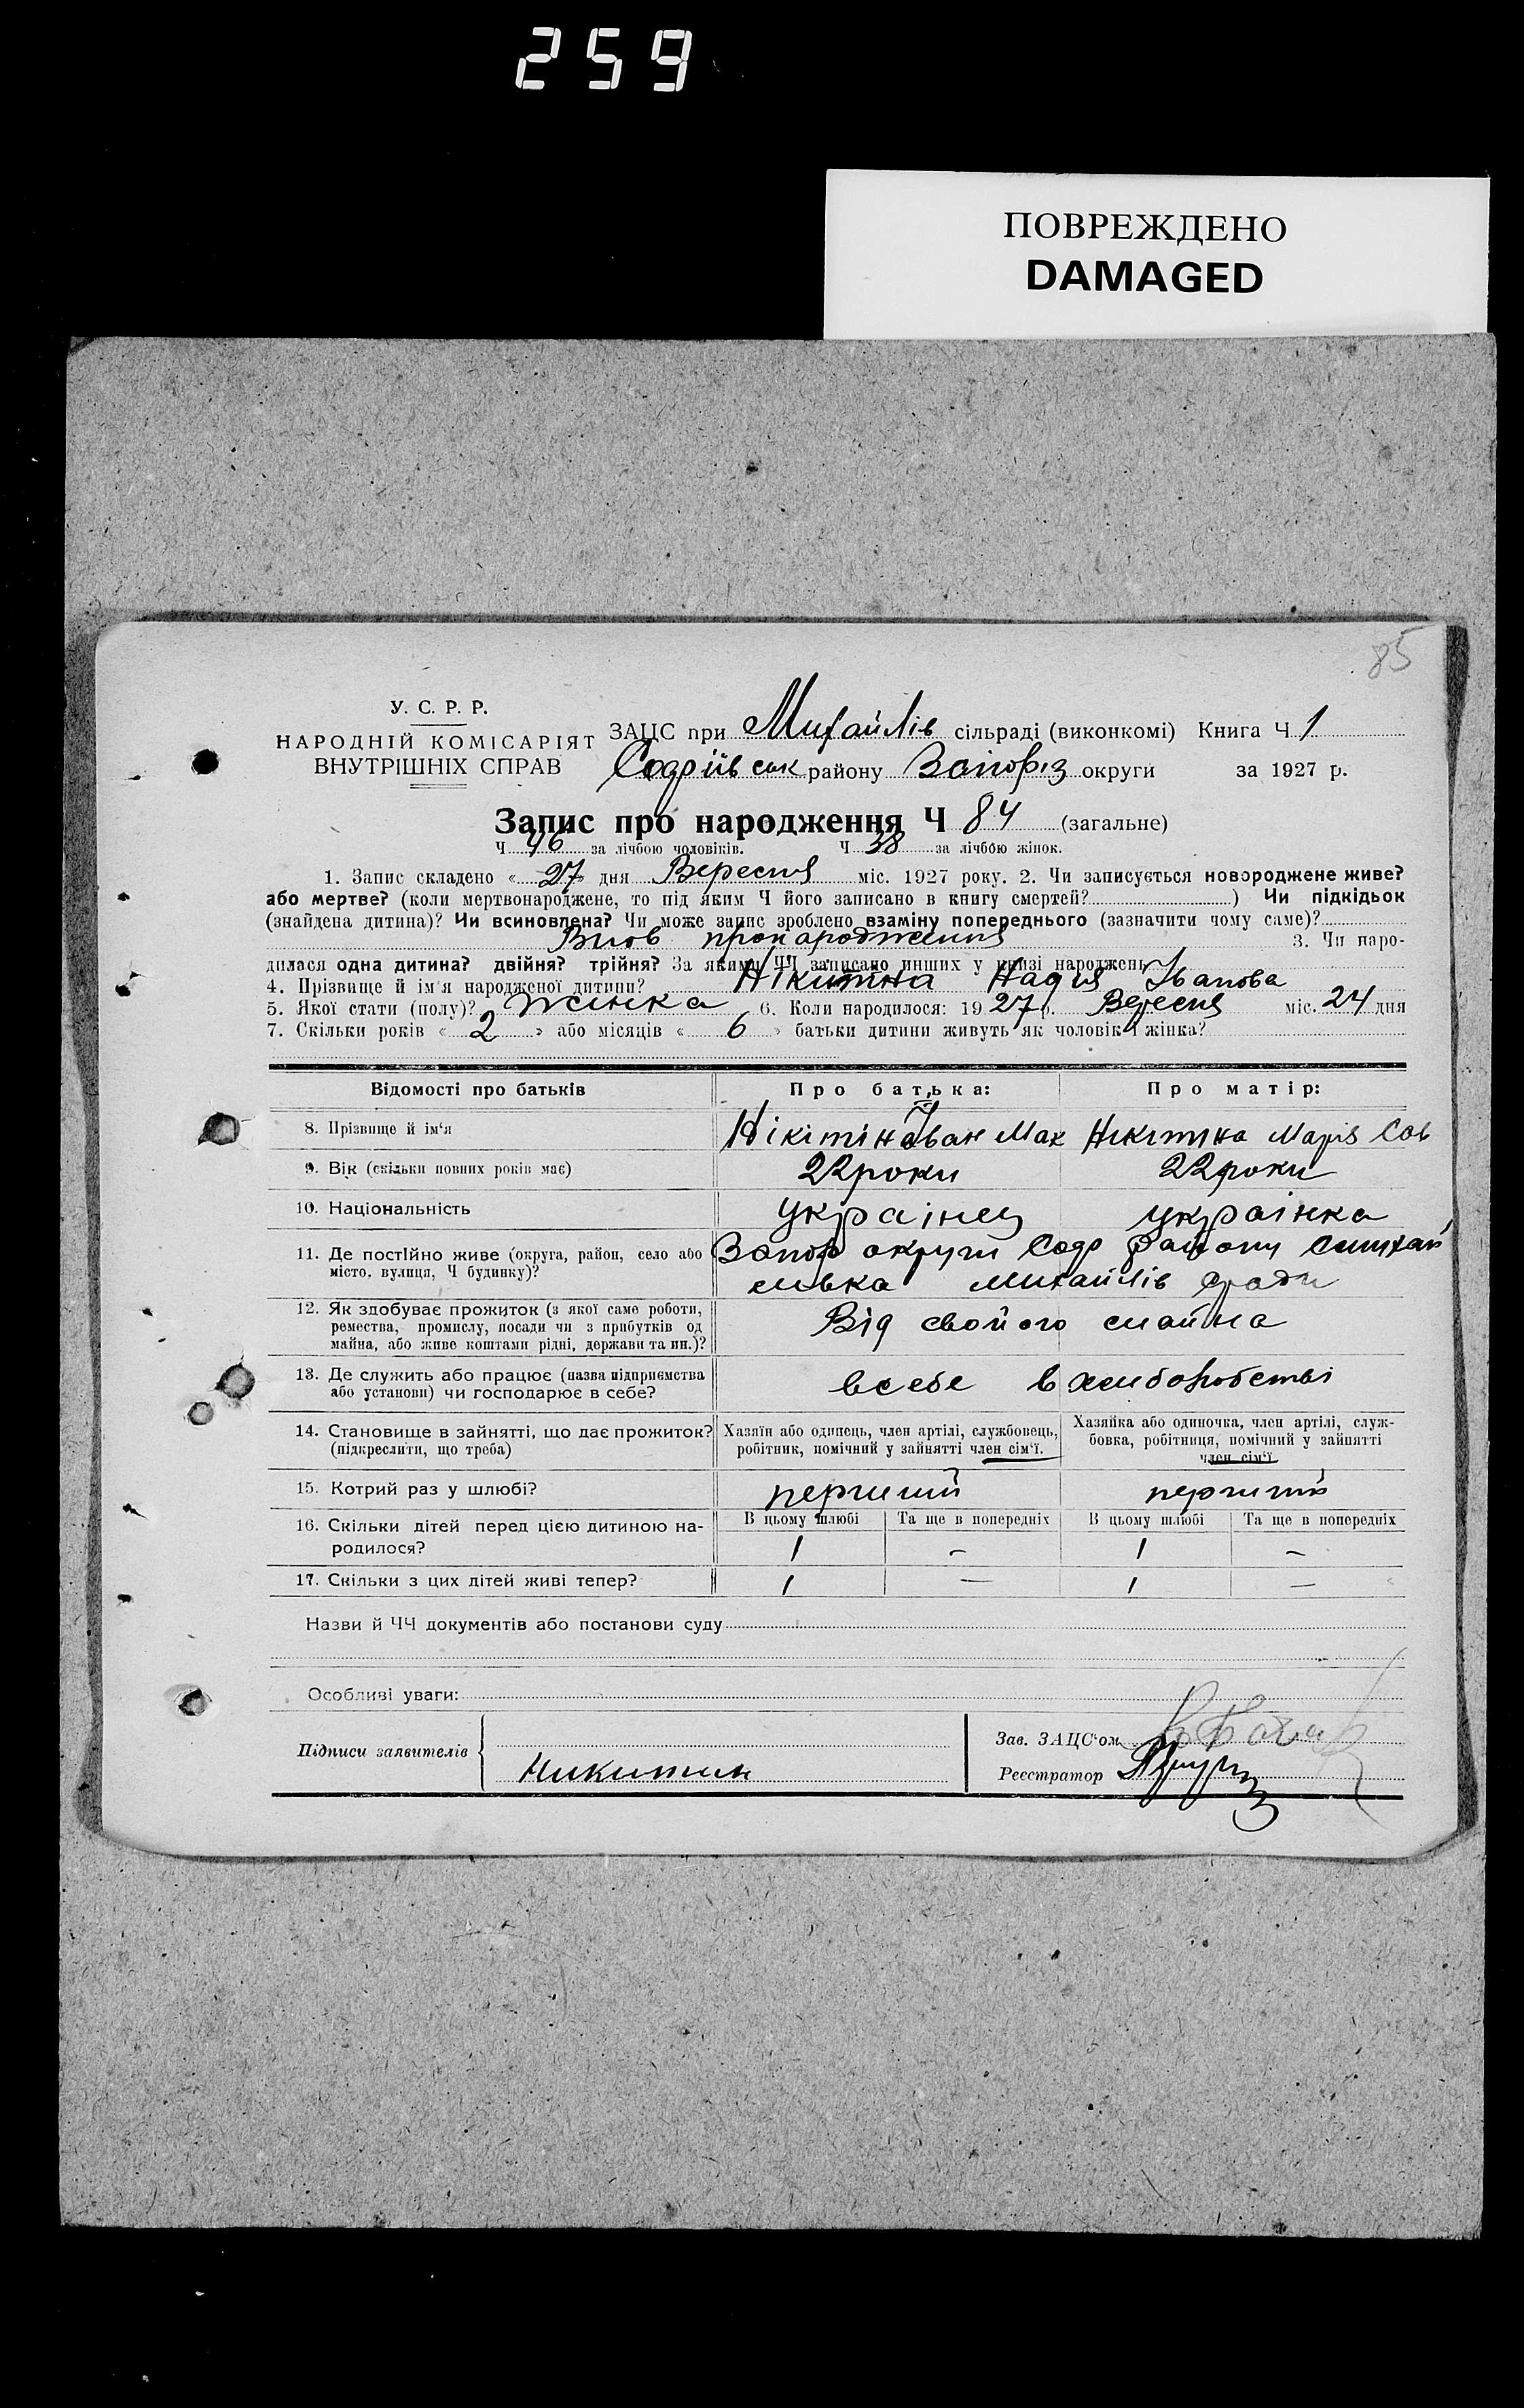 259
ПОВРЕЖДЕНО
DAMAGED
85
У. С. Р. Р.
НАРОДНІЙ КОМІСАРІЯТ
ВНУТРІШНІХ СПРАВ
ЗАЦС при Михайлів сільраді (виконкомі) Книга Ч 1
району Запоріз округи за 1927 р.
Запис про народження Ч 84 (загальне)
Ч 46 за лічбою чоловіків. Ч 38 за лічбою жінок.
1. Запис складено « 27 » дня Вересня міс. 1927 року. 2. Чи записується новороджене живе?
або мертве? (коли мертвонароджене, то під яким Ч його записано в книгу смертей? ) Чи підкідьок
(знайдена дитина)? Чи всиновлена? Чи може запис зроблено взаміну попереднього (зазначити чому саме)?
пронародження 3. Чи наро-
дилася одна дитина? двійня? трійня? За якими ЧЧ записано инших у книзі народжень
4. Прізвище й ім'я народженої дитини? Нікитіна Надія Іванова
5. Якої стати (полу)? жинка 6. Коли народилося: 1927 р. Вересня міс. 24 дня
7. Скільки років « 2 » або місяців « 6 » батьки дитини живуть як чоловік і жінка?
Відомості про батьків
Про батька:
Про матір:
8. Прізвище й ім'я Нікітін Іван Мак Никитина Марія Сав
9. Вік (скільки повних років має) 22 роки 22 роки
10. Національність українец українка
11. Де постійно живе (округа, район, село або Запор округи Содр району
місто, вулиця, Ч будинку)? Михайлів
12. Як здобуває прожиток (з якої саме роботи, Від свойого майна
ремества, промислу, посади чи з прибутків од
майна, або живе коштами рідні, держави та ин.)?
13. Де служить або працює (назва підприємства всебе в хлиборобстві
або установи) чи господарює в себе?
14. Становище в зайнятті, що дає прожиток?
(підкреслити, що треба)
Хазяїн або одинець, член артілі, службовець,
робітник, помічний у зайнятті член сім'ї.
Хазяйка або одиночка, член артілі, служ-
бовка, робітниця, помічний у зайнятті
член сім'ї
15. Котрий раз у шлюбі? перший перший
16. Скільки дітей перед цією дитиною на-
родилося?
В цьому шлюбі Та ще в попередніх В цьому шлюбі Та ще в попередніх
1 – 1 –
17. Скільки з цих дітей живі тепер? 1 — 1 —
Назви й ЧЧ документів або постанови суду
Особливі уваги:
Підписи заявителів
Никитин
Зав. ЗАЦС'ом
Реєстратор